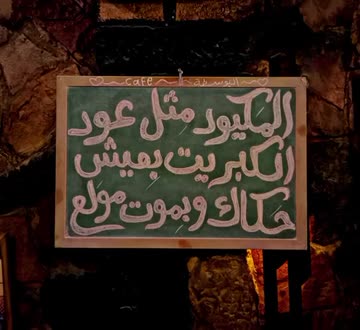 café
المَكيود مِثل عود
الكبريت بِعيش
حَكاك وبِموت مولع